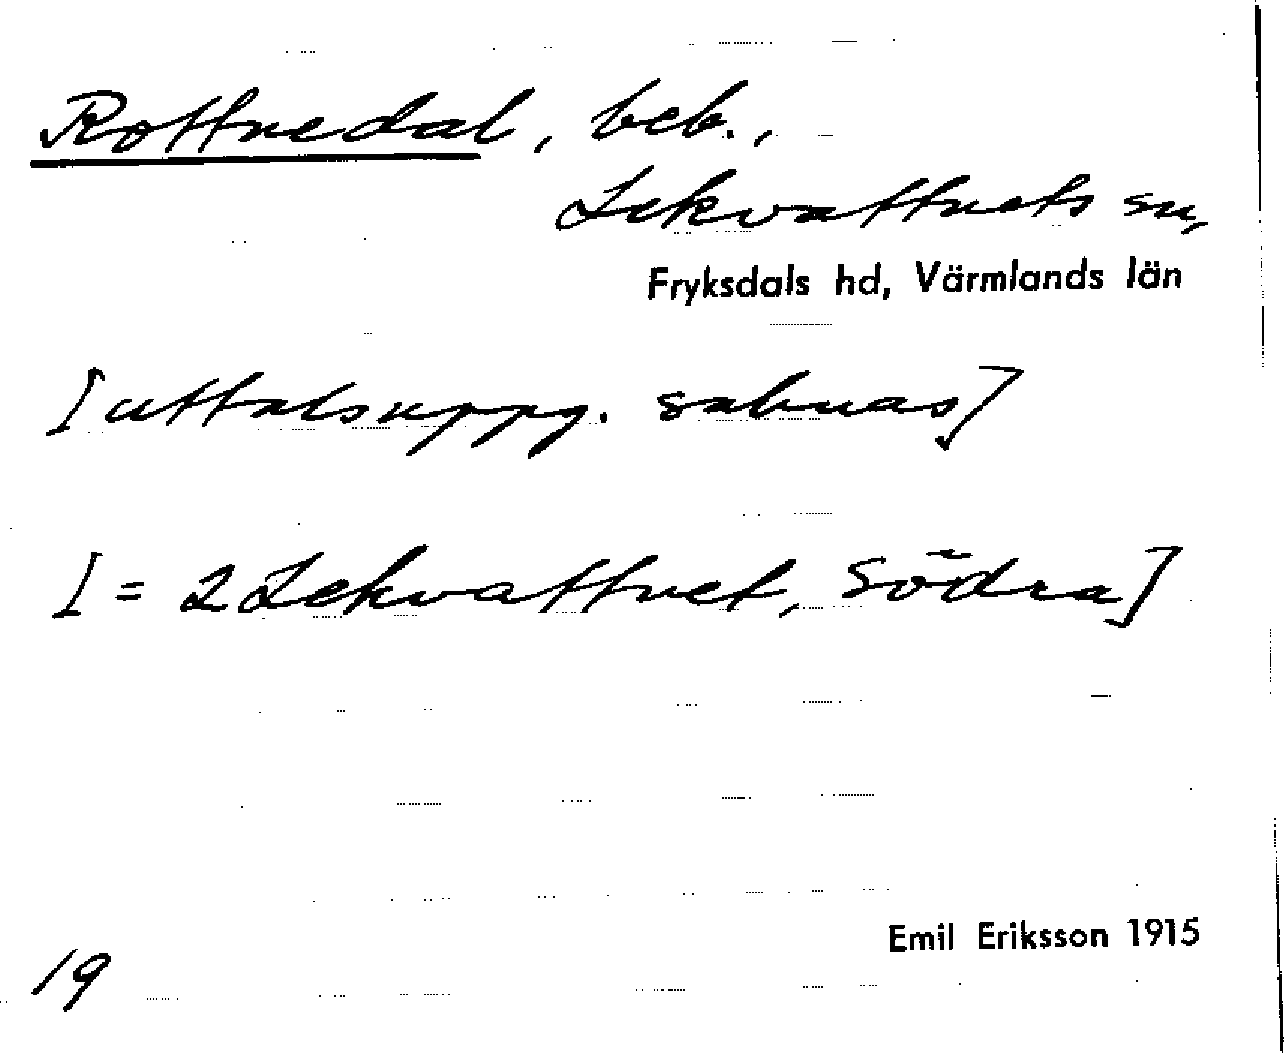 Rottnedal, beb.,
Lekvattnets sn,
Fryksdals hd, Värmlands län
[uttalsuppg. saknas]
[= 2 Lekvattnet, Södra]
Emil Eriksson 1915
19